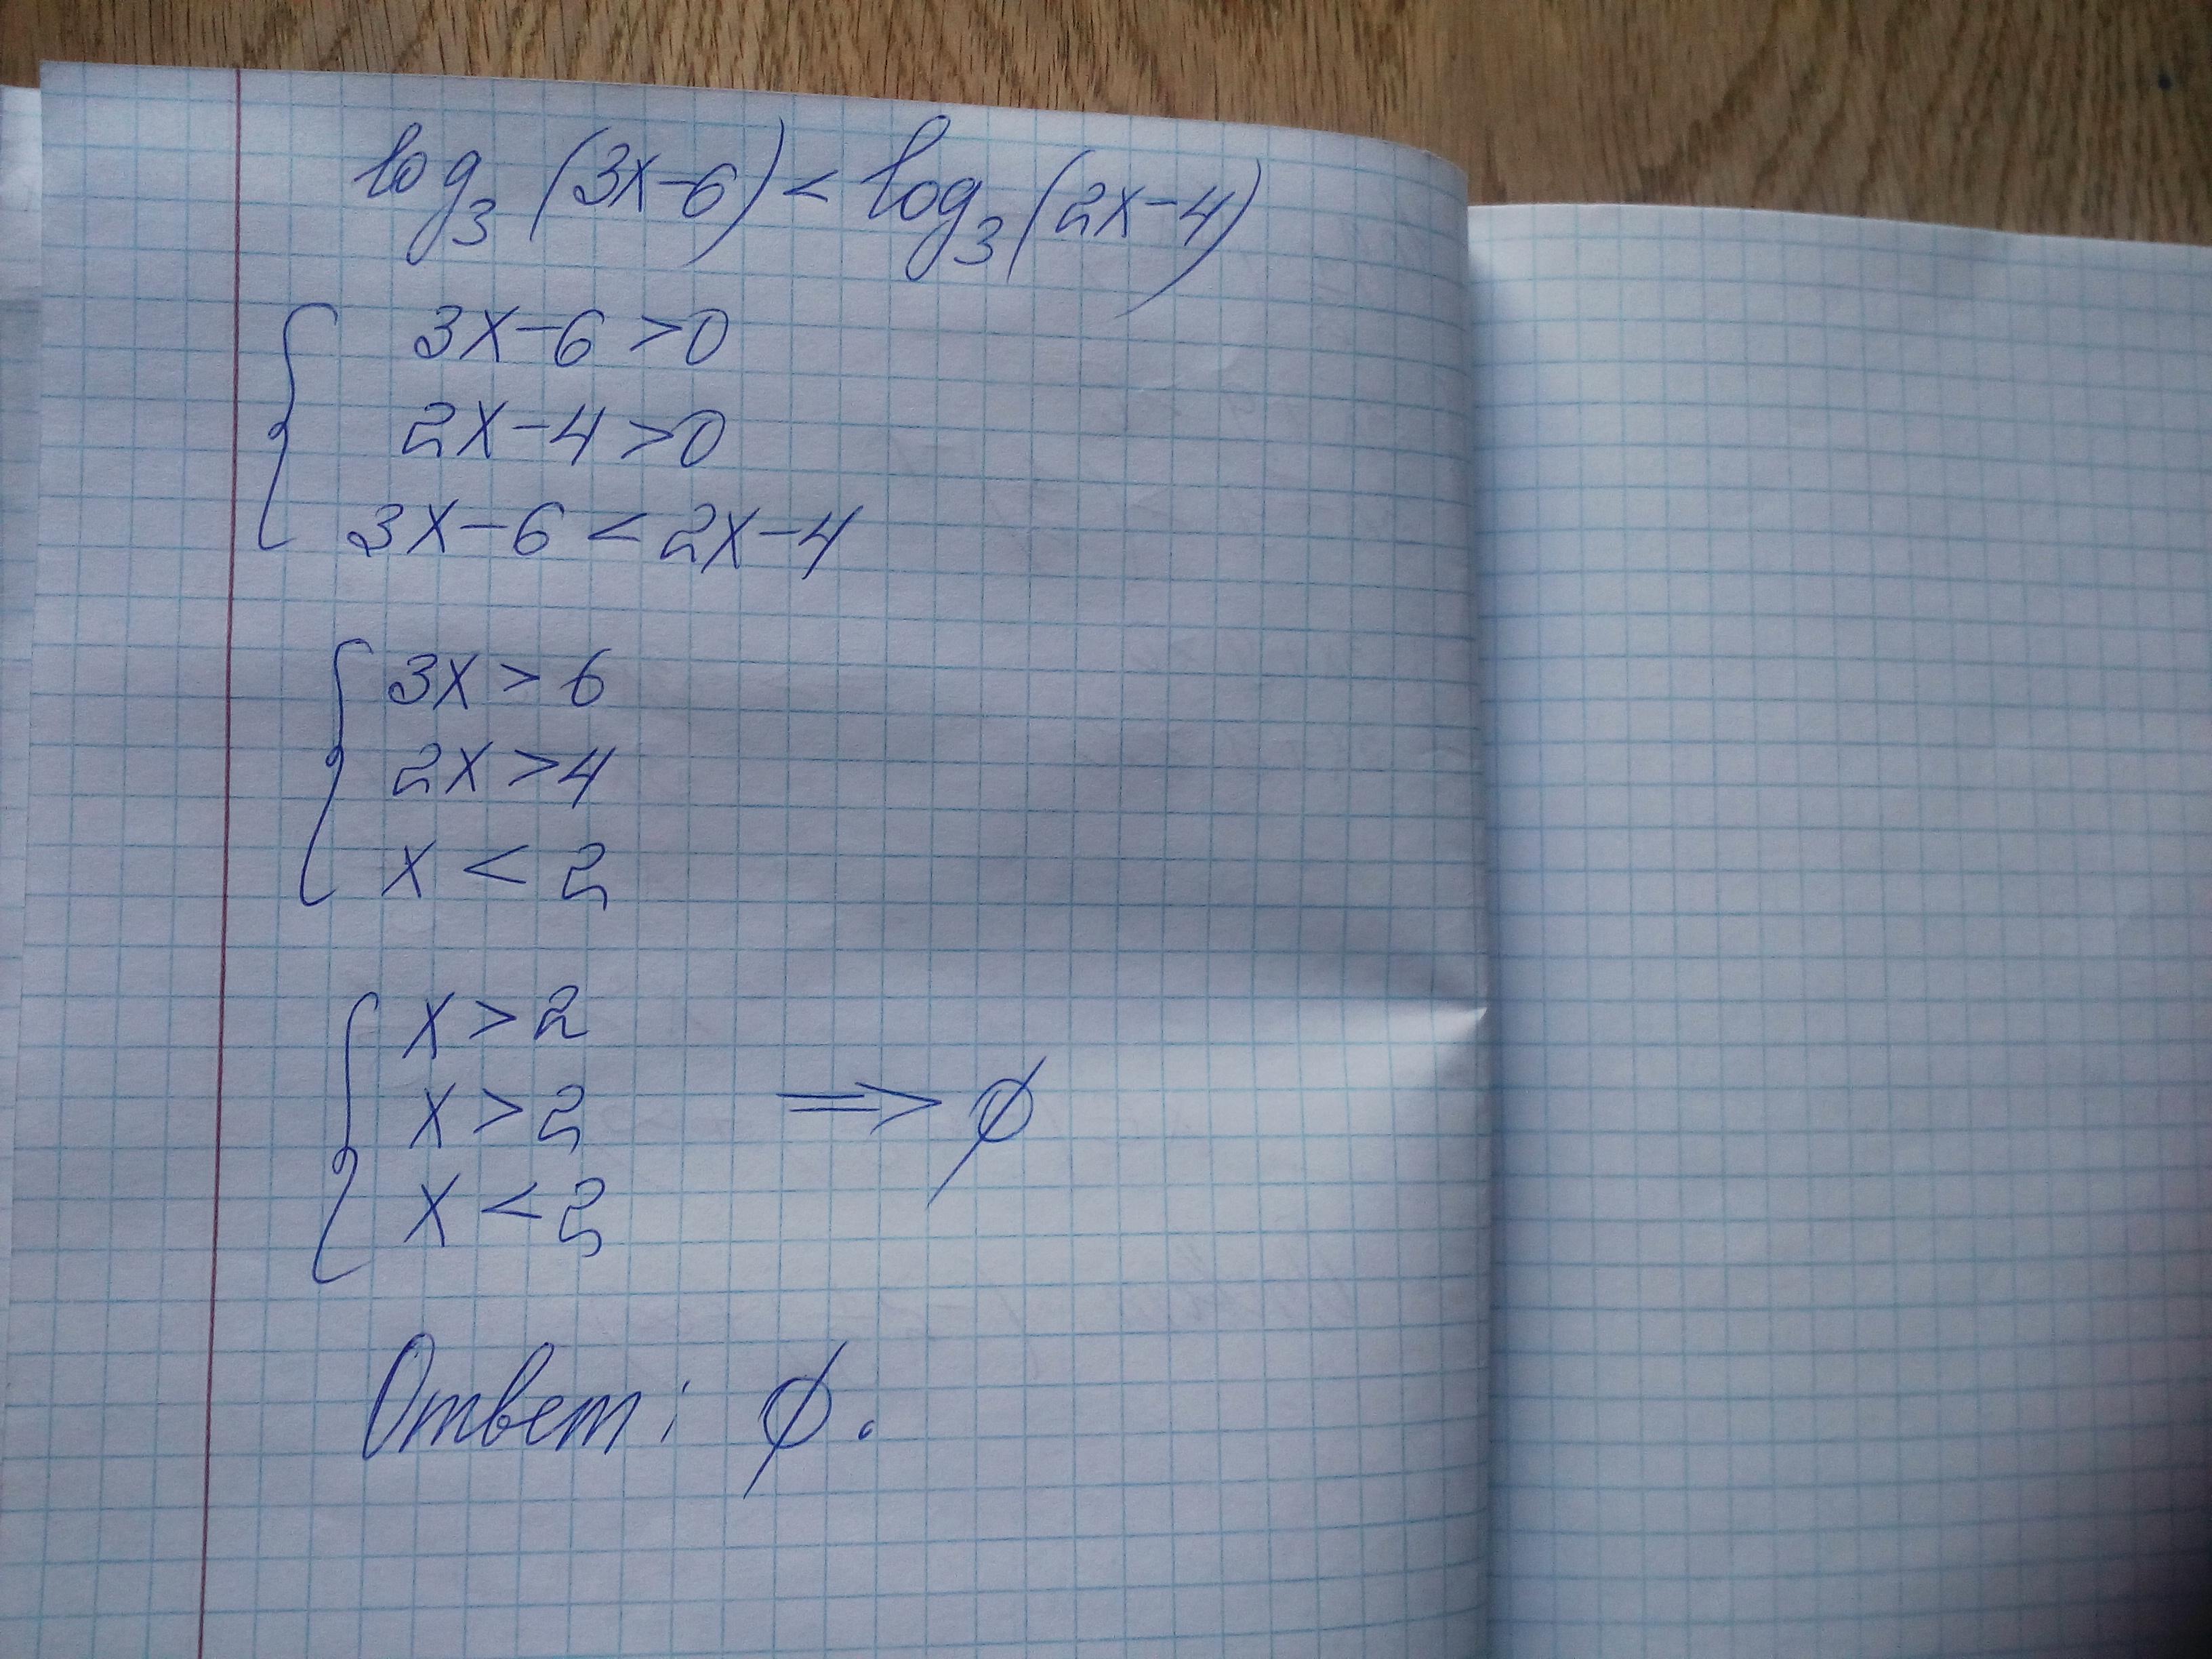 log₃(3x-6)<log₃(2x-4)
3x-6>0
2x-4>0
3x-6<2x-4
3x>6
2x>4
x<2
x>2
x>2 ⟹ ∅
x<2
Ответ: ∅.